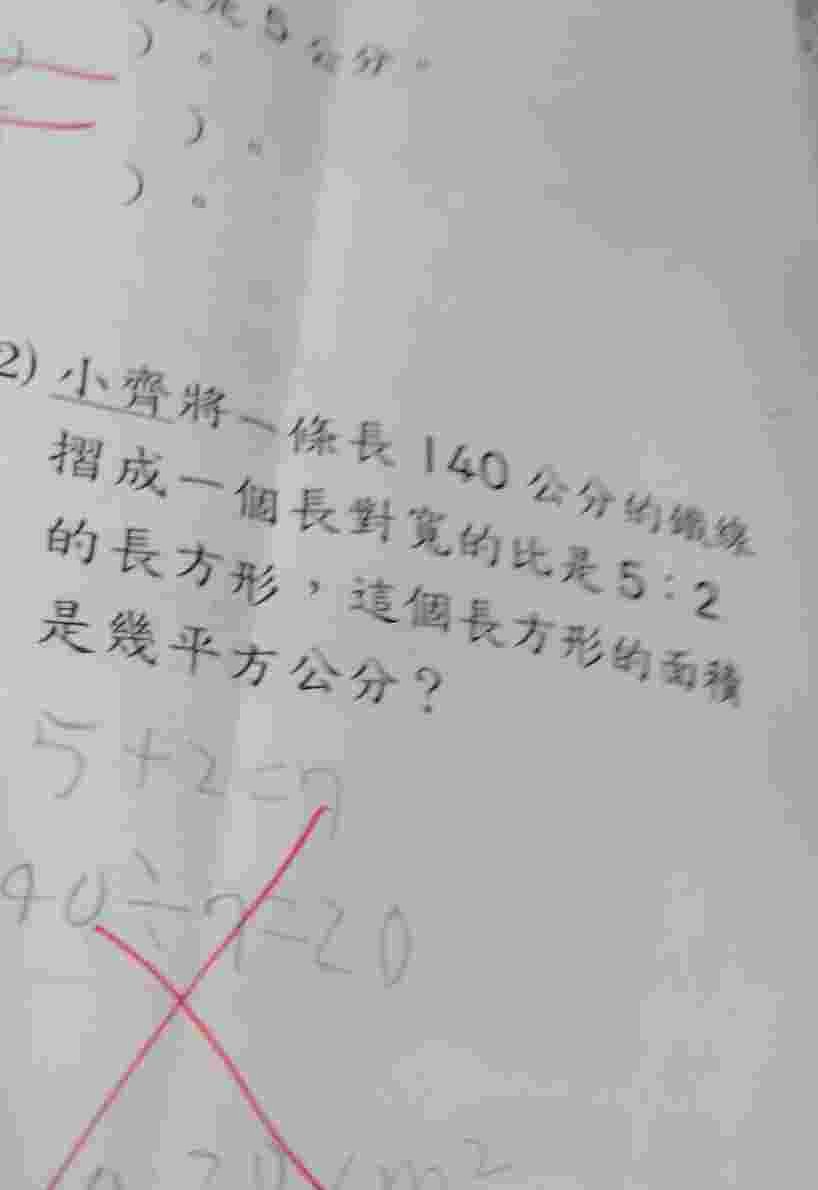 是5公分。
）。
）。
）。
2) 小齊將一條長140公分的鐵線
摺成一個長對寬的比是5：2
的長方形，這個長方形的面積
是幾平方公分？
5+2=7
40÷7=20